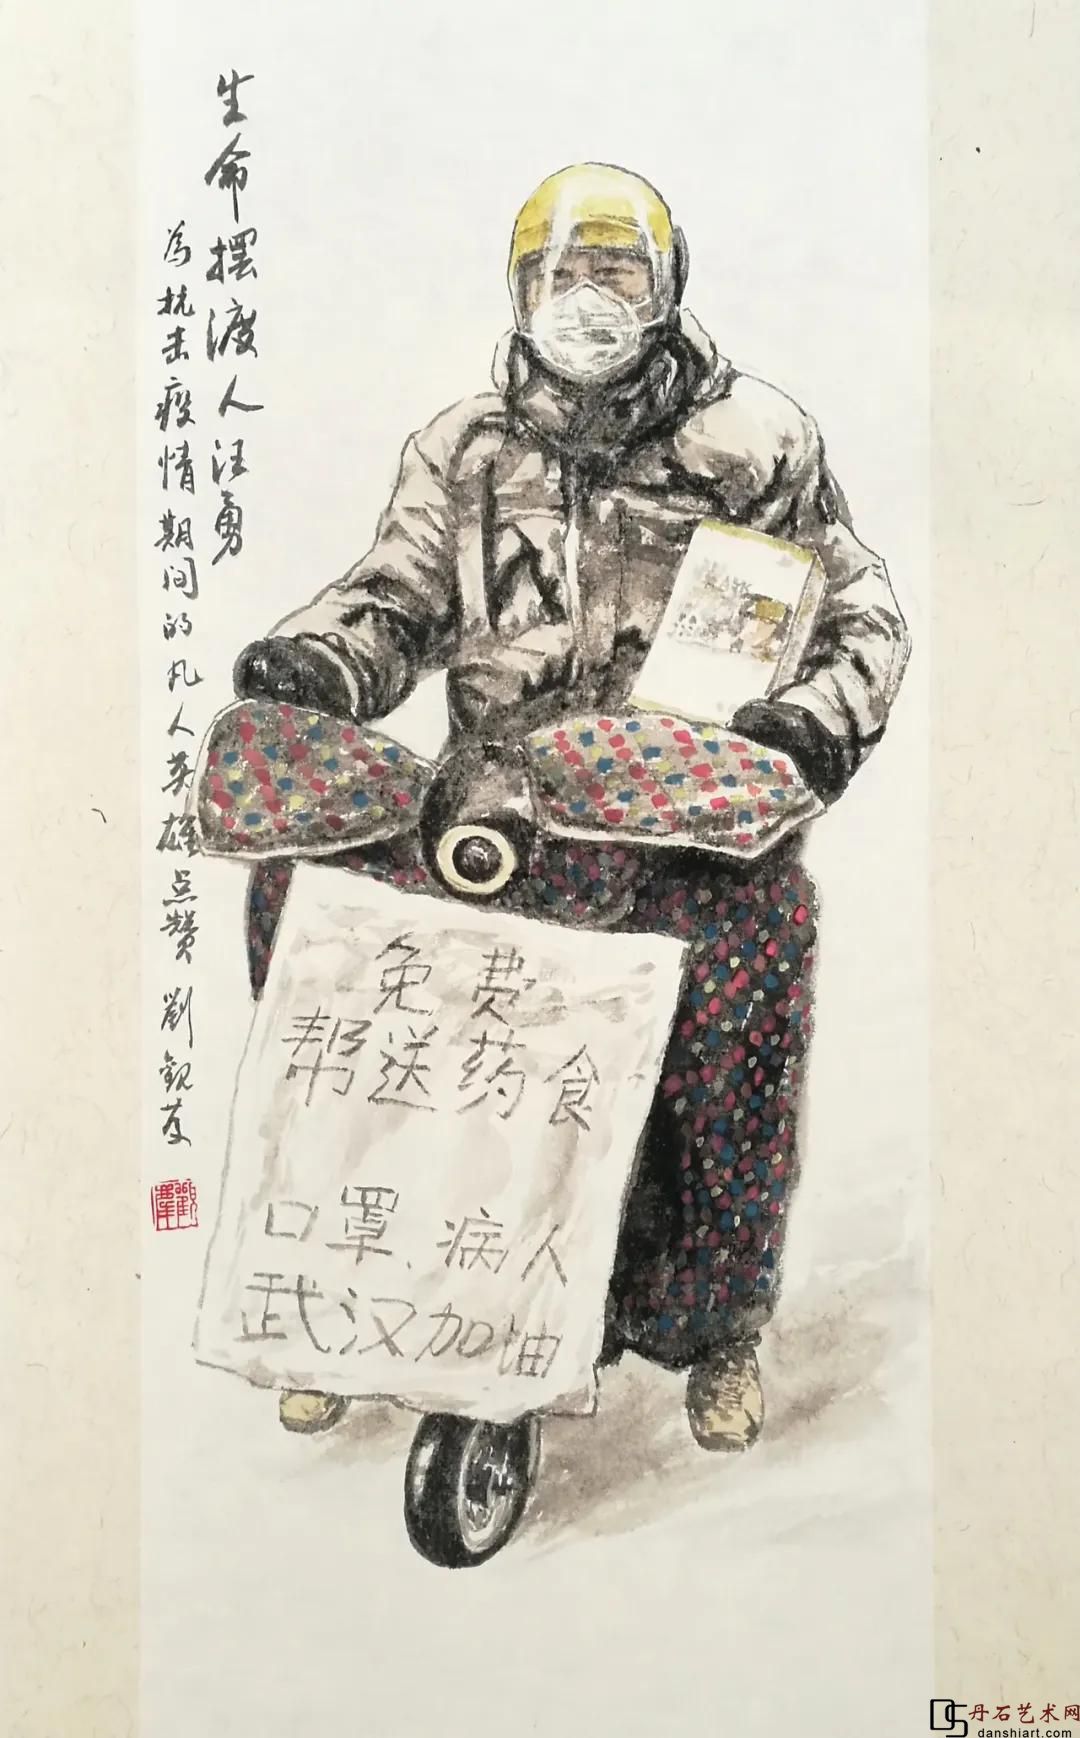 生命摆渡人汪勇
为抗击疫情期间的凡人英雄点赞 劉觀慶
免费
帮送药食
口罩、病人
武汉加油
丹石艺术网
danshiart.com